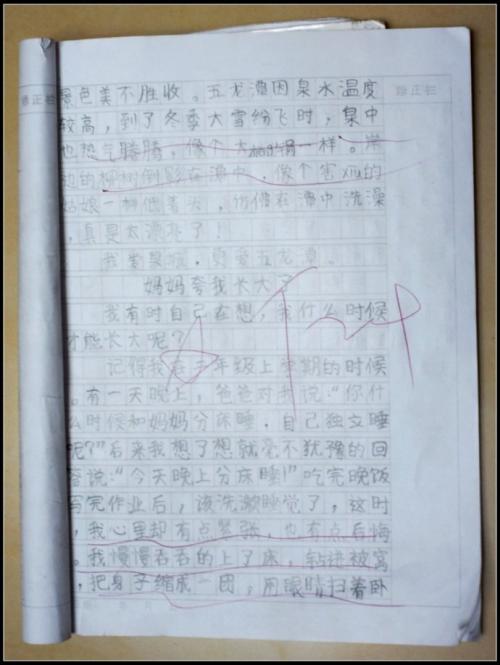 景色美不胜收。五龙潭因泉水温度
较高，到了冬季大雪纷飞时，泉中
也热气腾腾，像个大 一样。岸
边的柳树倒影在潭中，像个害xiu的
姑娘一样低着头，仿佛在潭中洗澡
，真是太漂亮了！
我爱泉城，更爱五龙潭。
妈妈夸我长大了
我有时自己在想，我什么时候
才能长大呢？
记得我在 年级上学期的时候
。有一天晚上，爸爸对我说：“你什
么时候和妈妈分床睡，自己独立睡
呢？”后来我想了想就毫不犹豫的回
答说：“今天晚上分床睡！”吃完晚饭
写完作业后，该洗漱睡觉了，这时
，我心里却有点紧张，也有点后悔
。我慢慢吞吞的上了床，钻进被窝
，把身子缩成一团，用眼睛扫着卧